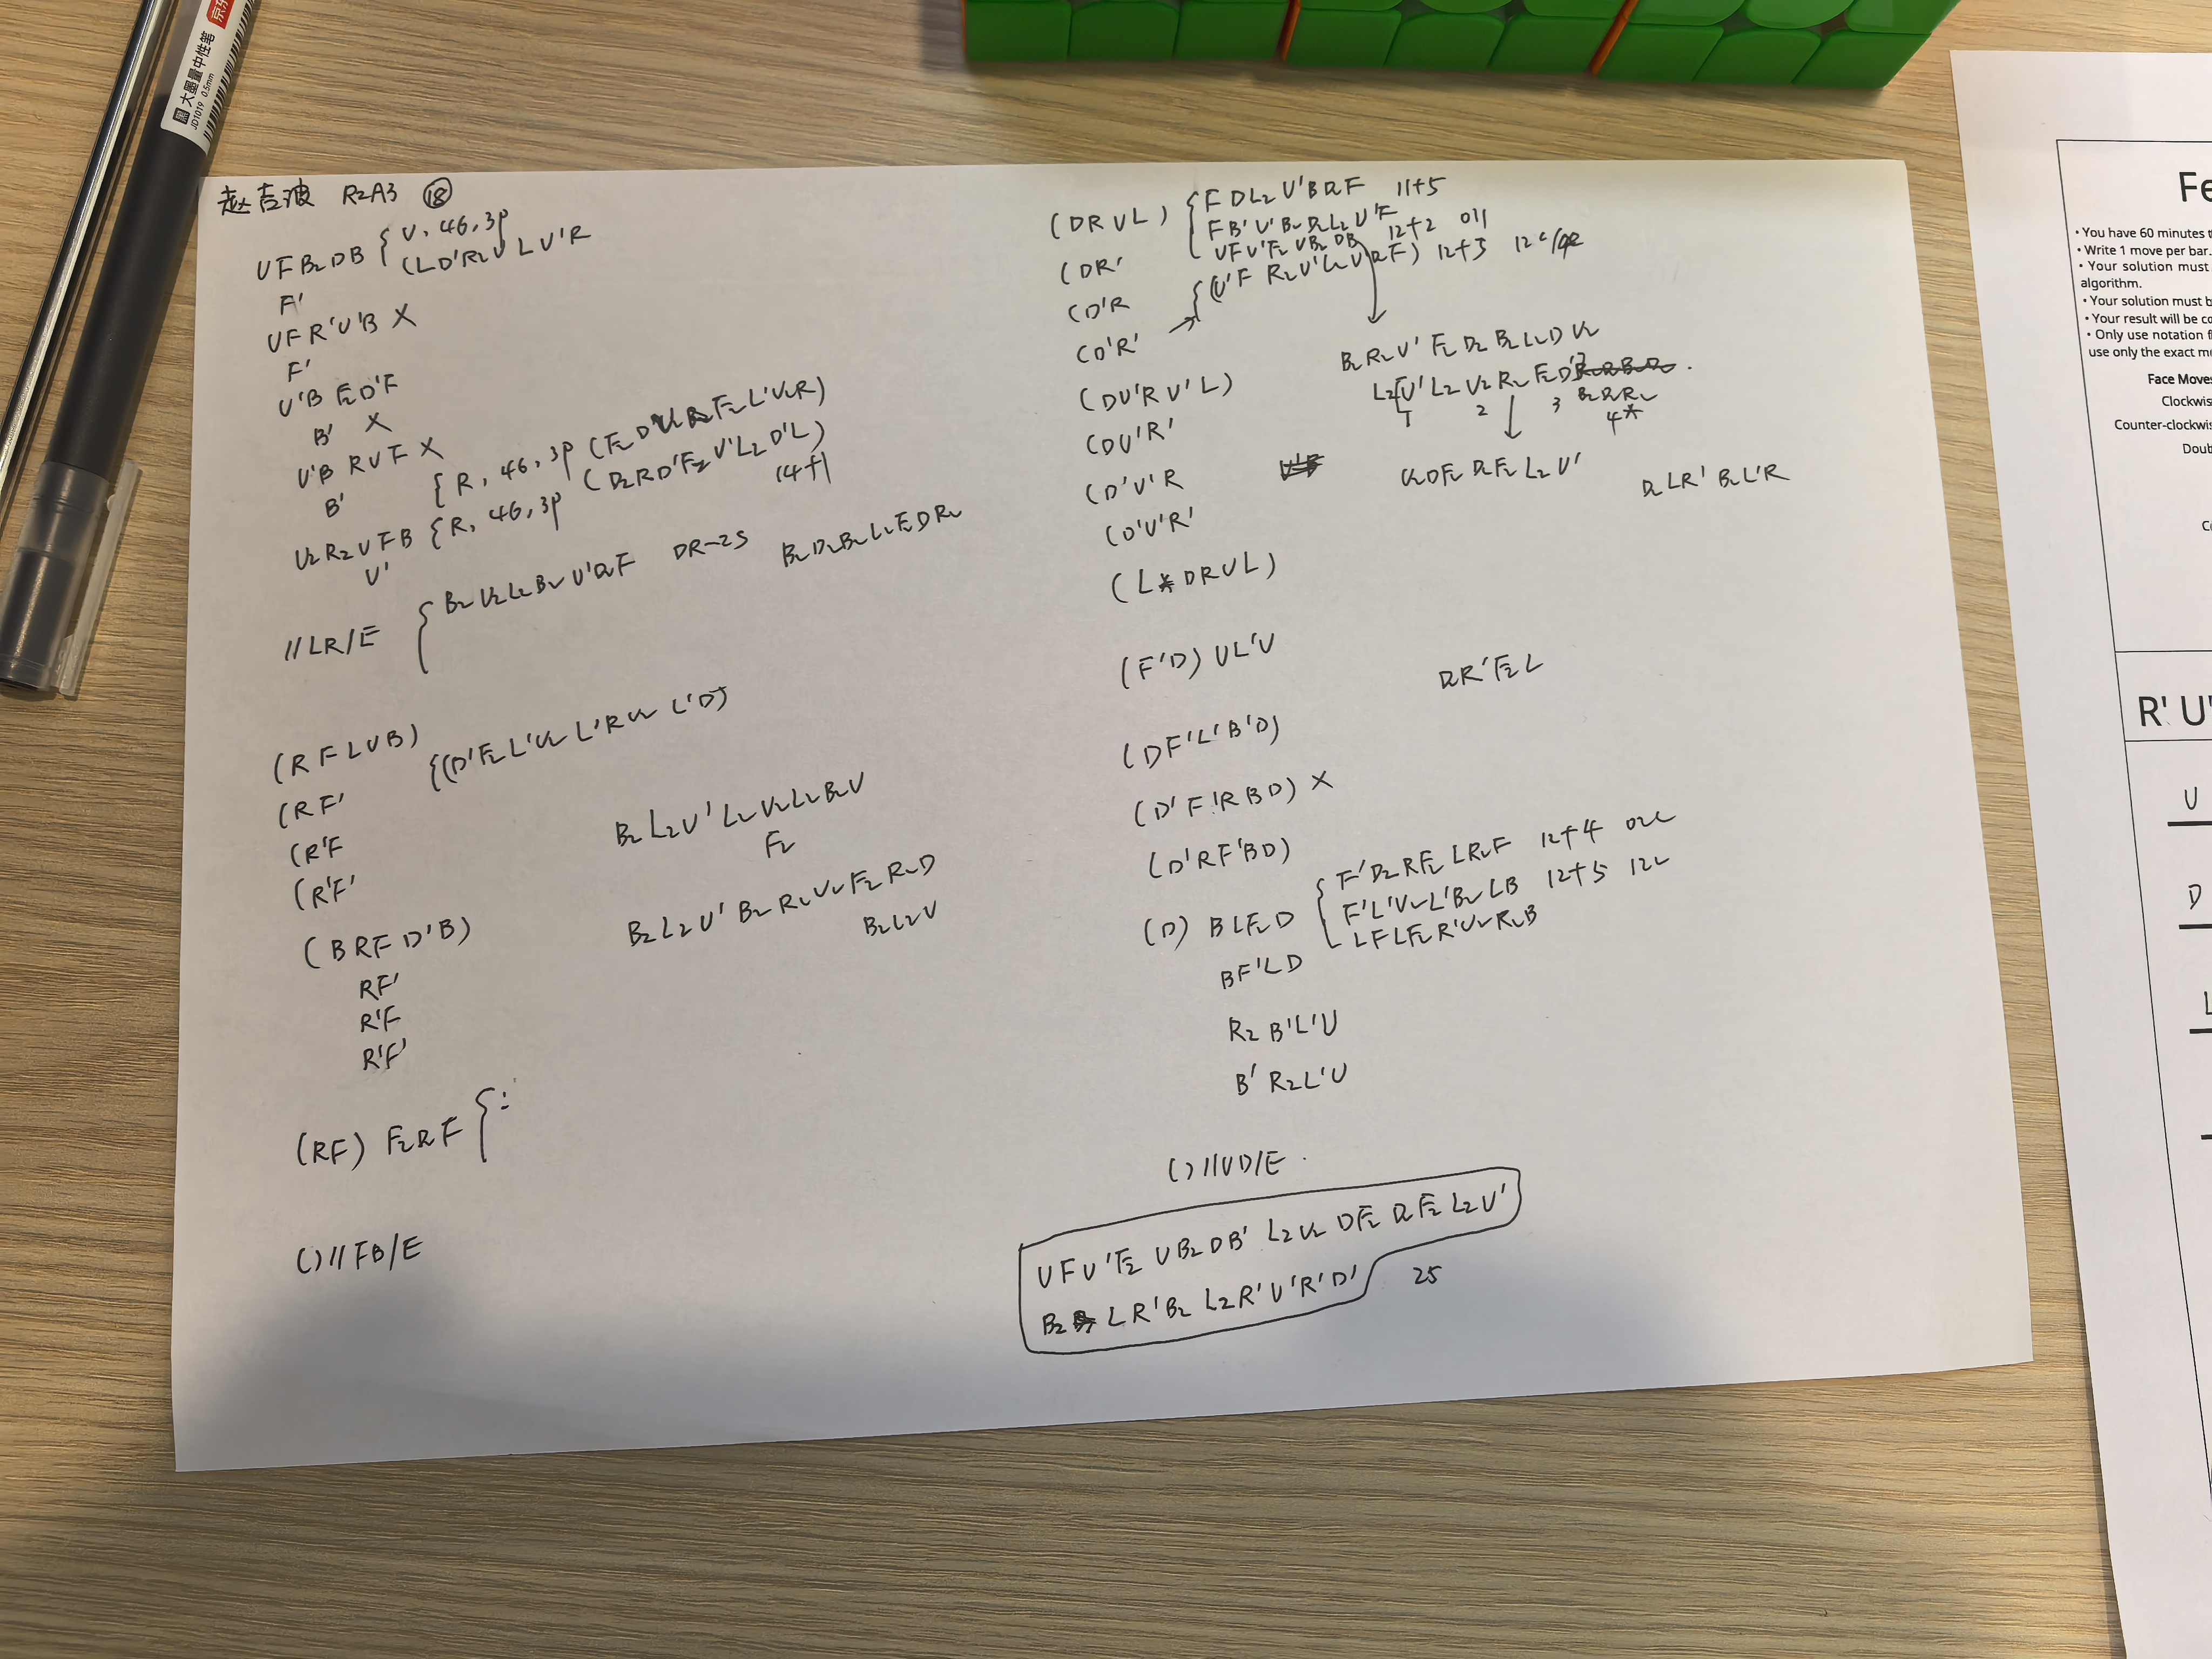 京东
黑 大墨量中性笔
JD1019 0.5mm
赵吉波 R2A3 ⑱
UFB2DB { U, 4G, 3P
(LD'R2ULU'R
F'
UFR'U'B ×
F'
U'B F2D'F
B' ×
U'B RUF ×
B'
{ R, 4G, 3P
U2R2UFB { R, 4G, 3P (D2RD'F2U'L2D'L)
U'
14f1
//LR/E { B2U2L2B2U'D2F DR-2S B2D2B2L2F2DR2
(RFLUB) {(D'F2L'U2L'RU2L'D)
(RF'
(R'F
(R'F'
B2L2U'L2U2L2B2U
F2
(BRFD'B)
B2L2U'B2R2U2F2R2D
B2L2U
RF'
R'F
R'F'
(RF) F2R2F { :
() // FB/E
(DRUL) { FDL2U'BD2F 11+5
FB'U'B2D2L2U'F
(DR' UFU'F2UB2DB 12+2 0ll
(D'R
(D'R' → { (U'F R2U'L2UD2F) 12+3
B2R2U'F2D2B2L2DU2
L2[U'L2U2R2F2D']
1 2 3 B2D2R2
4*
(DU'RU'L)
(DU'R'
(D'U'R
U2DF2D2F2L2U'
D2LR'B2L'R
(D'U'R'
(L DRUL)
(F'D) UL'U
D2R'F2L
(DF'L'B'D)
(D'F'RBD) ×
(D'RF'BD)
(D) BLF2D { F'D2RF2LR2F 12+4 02c
F'L'U2L'B2LB 12+5 12c
LFLF2R'U2R2B
BF'LD
R2B'L'U
B'R2L'U
() // UD/E
UFU'F2UB2DB'L2U2DF2D2F2L2U'
B2 LR'B2L2R'U'R'D' 25
Fe
• You have 60 minutes t
• Write 1 move per bar.
• Your solution must
algorithm.
• Your solution must b
• Your result will be co
• Only use notation f
use only the exact m
Face Moves
Clockwis
Counter-clockwis
Doub
R' U'
U
D
L